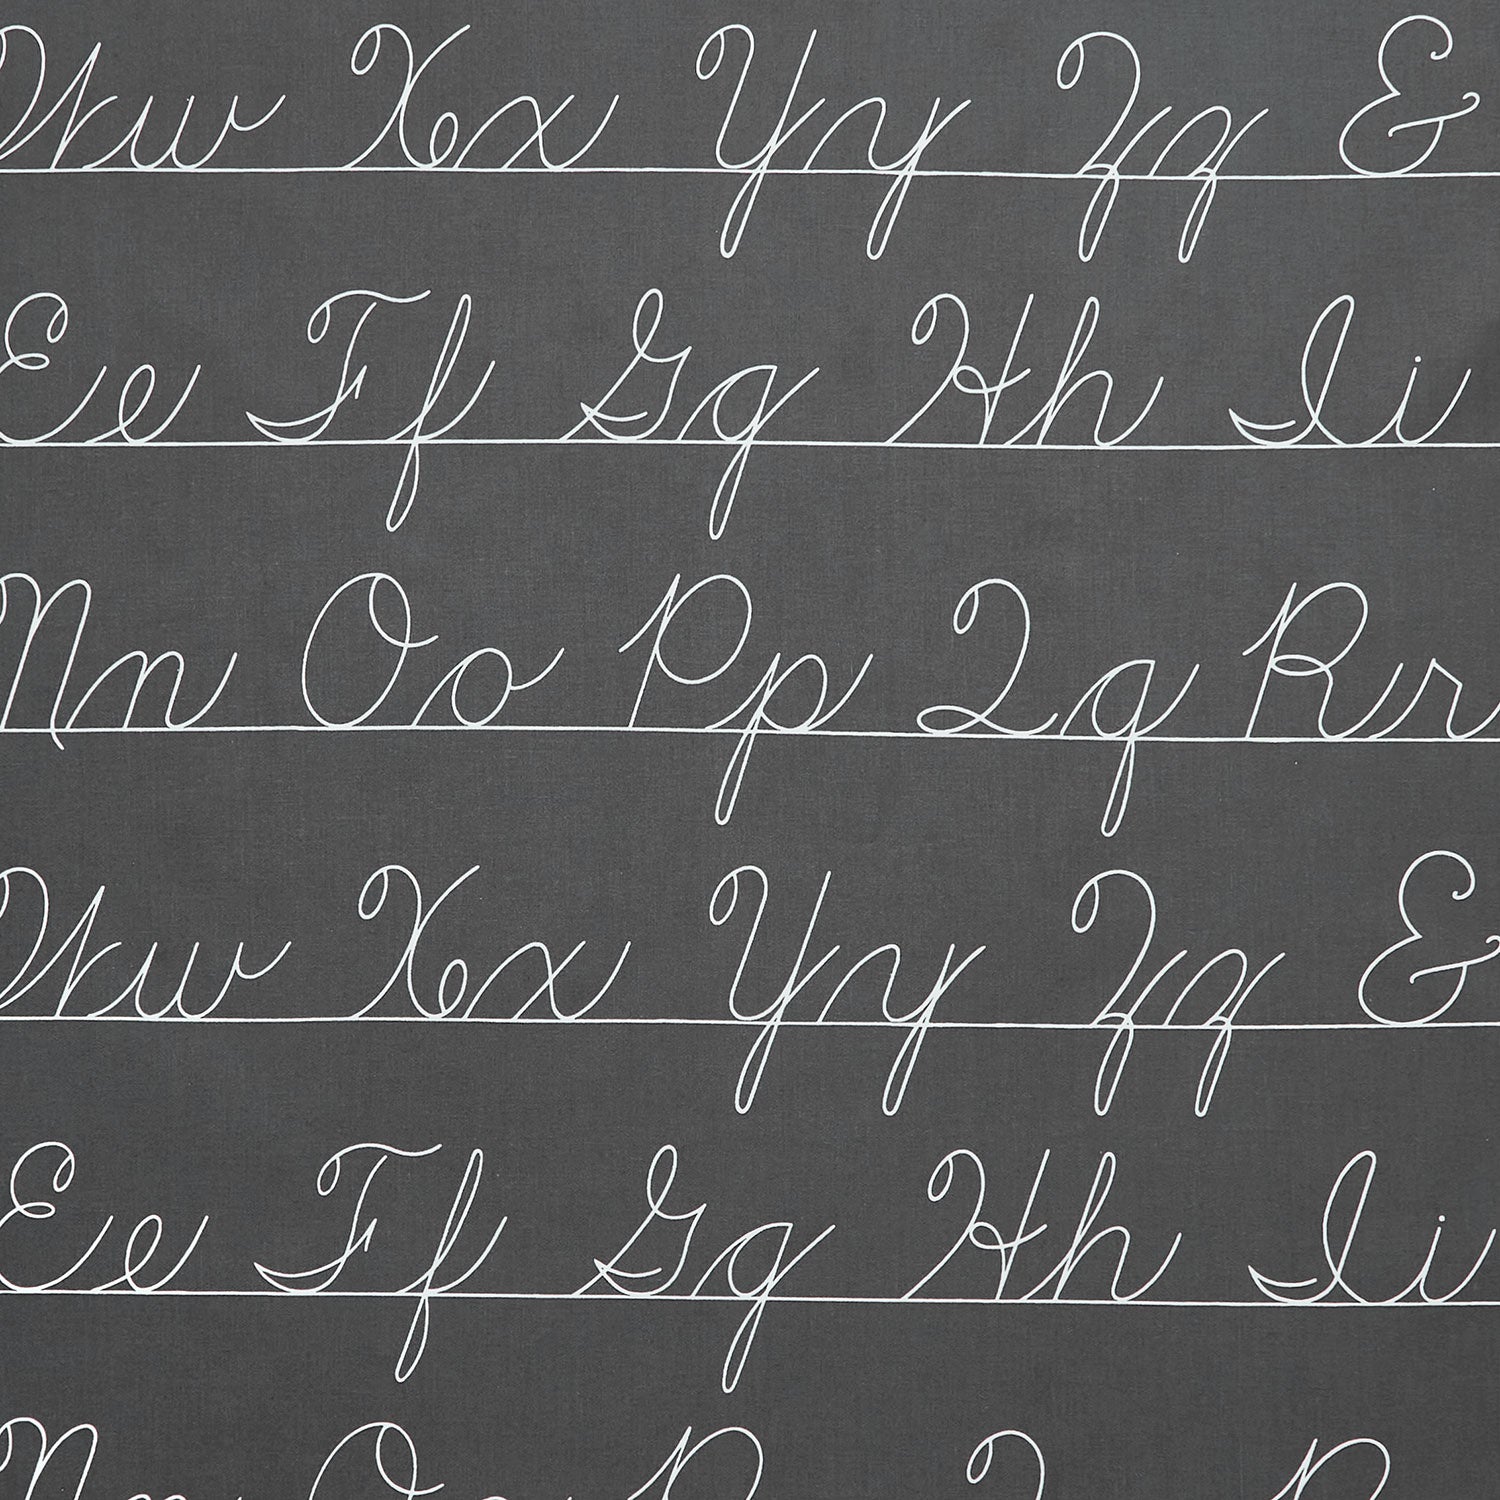 Ww Xx Yy Zz &
Ee Ff Gg Hh Ii
Nn Oo Pp Qq Rr
Ww Xx Yy Zz &
Ee Ff Gg Hh Ii
N O P Q R